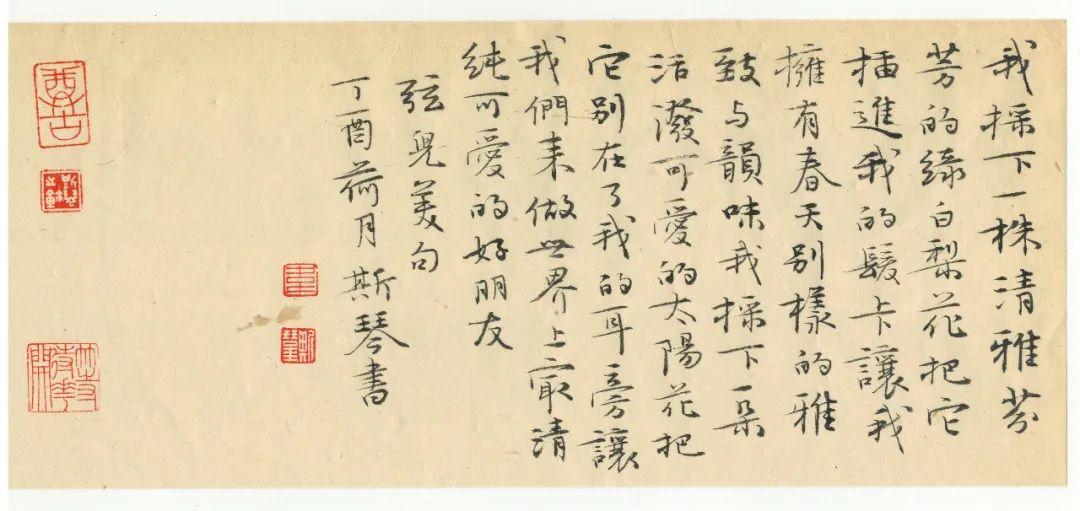 我採下一株清雅芬
芳的綠白梨花把它
插進我的髮卡讓我
擁有春天別樣的雅
致与韻味我採下一朵
活潑可愛的太陽花把
它別在了我的耳旁讓
我們来做世界上最清
純可愛的好朋友
弦兒美句
丁酉荷月 斯琴書